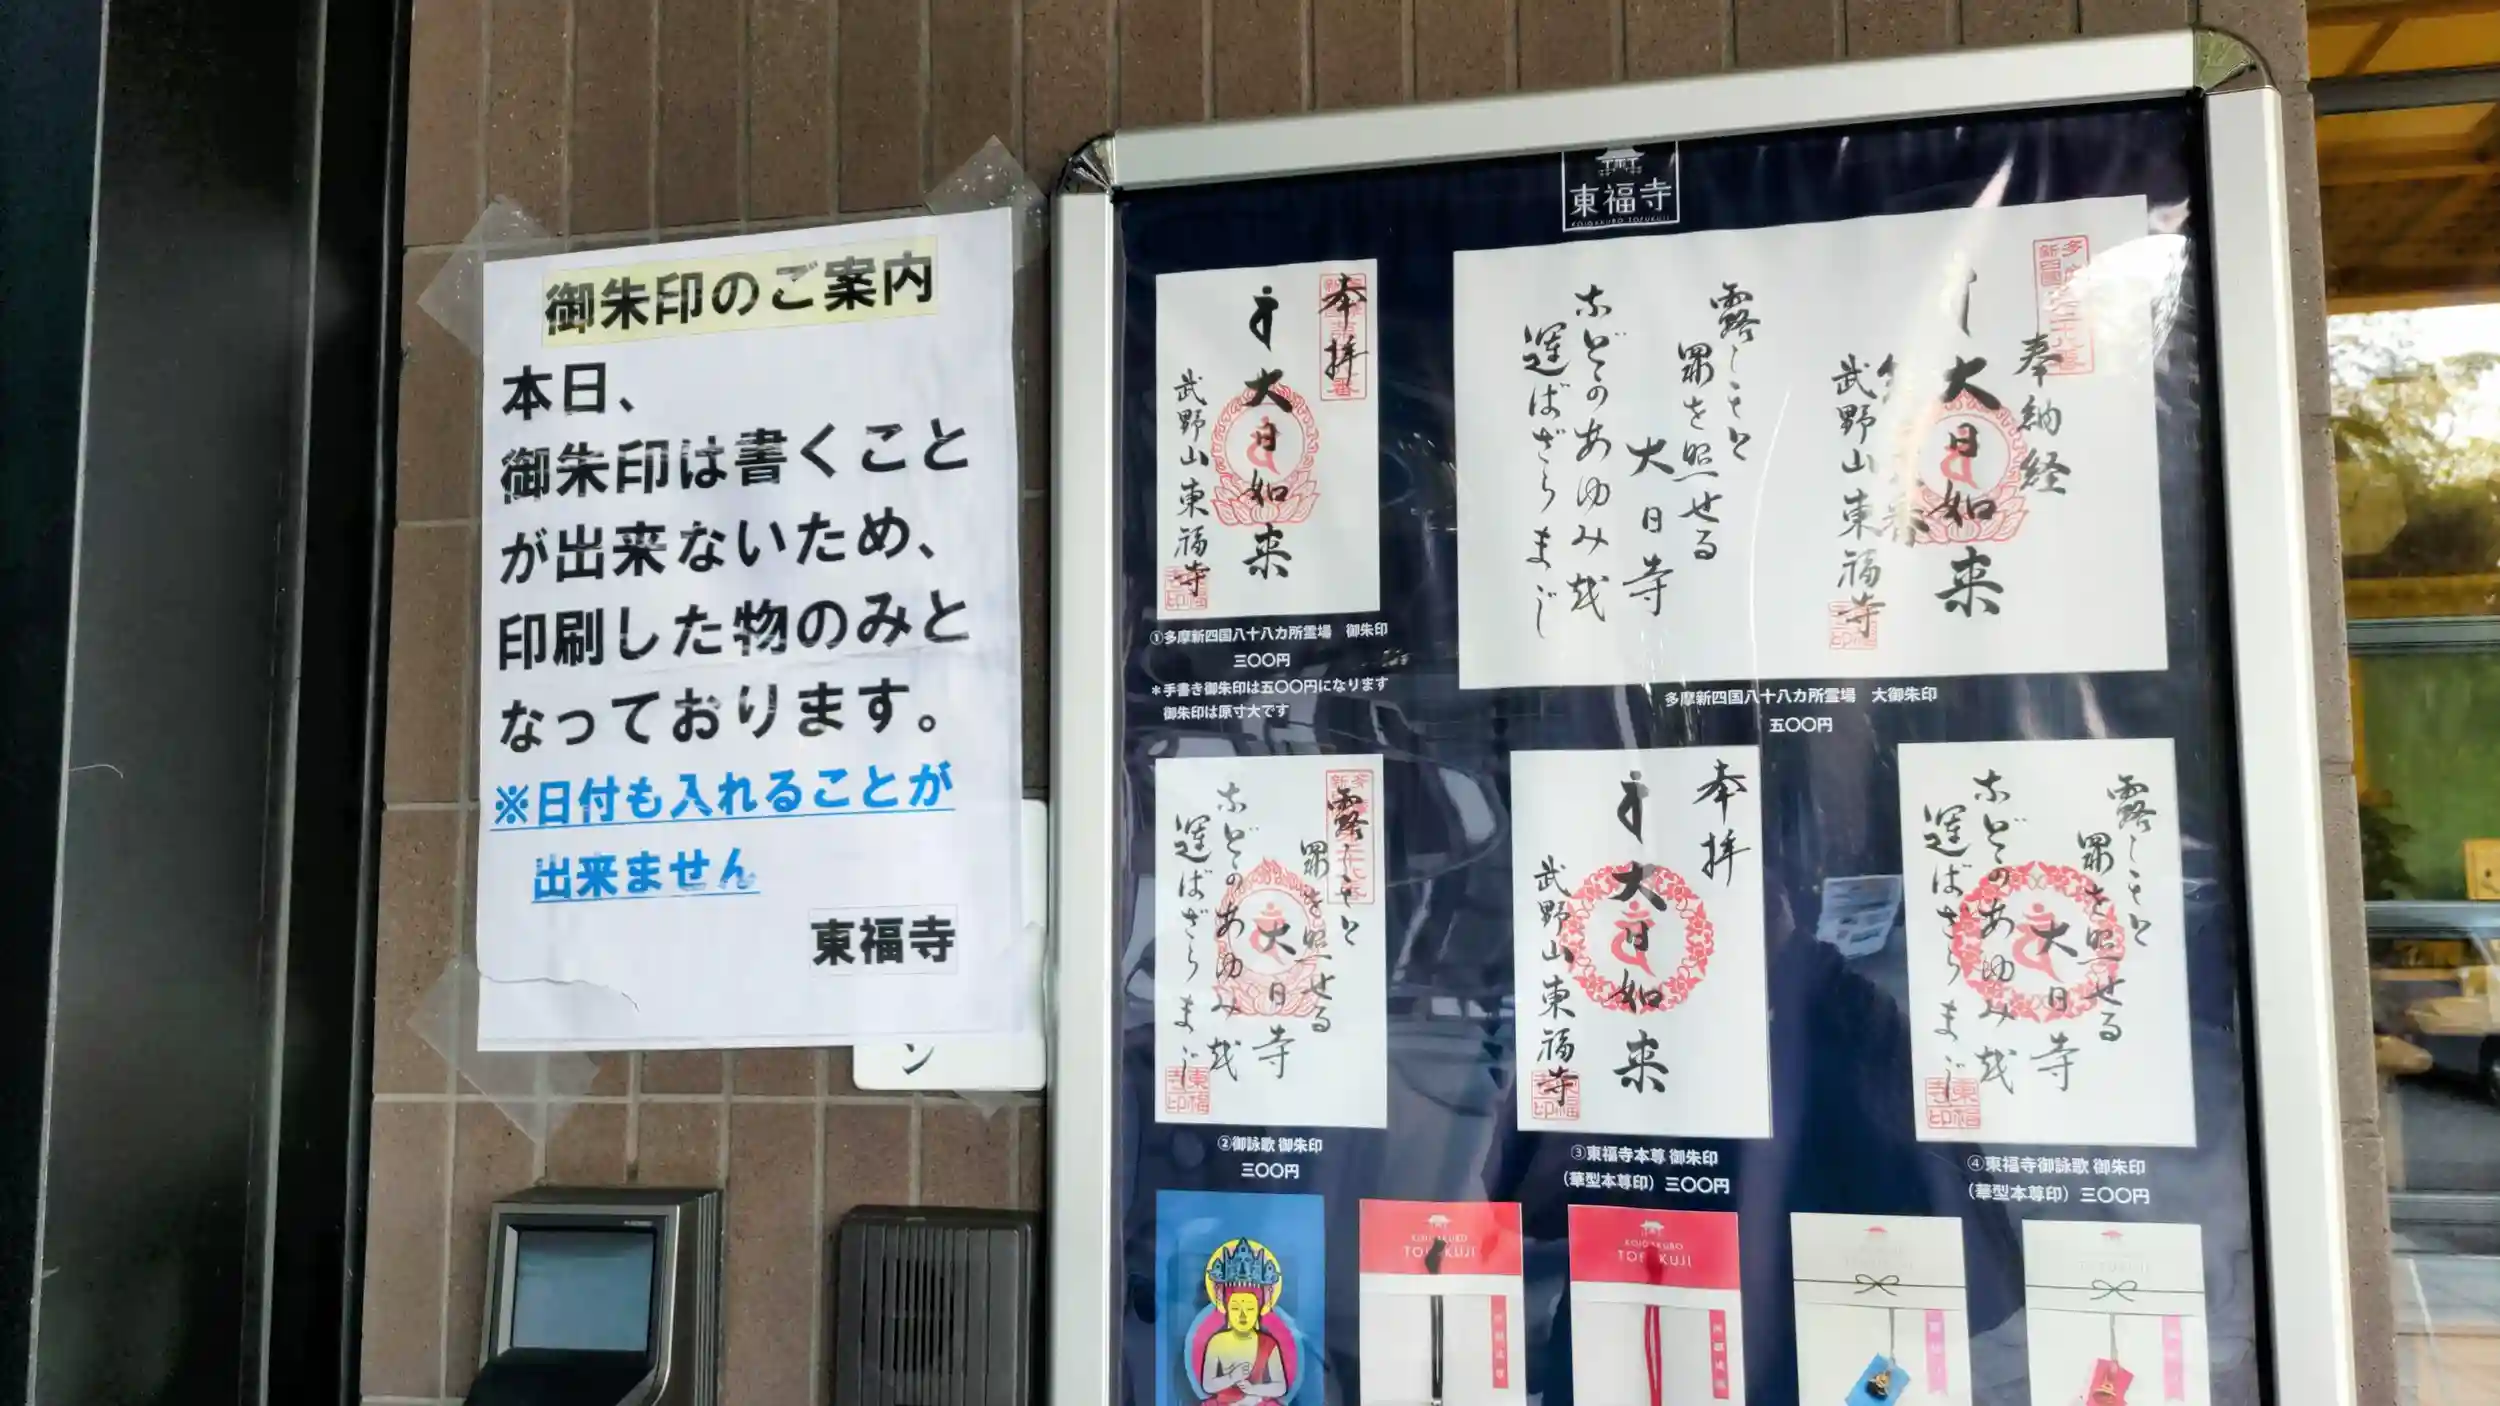 御朱印のご案内
本日、
御朱印は書くこと
が出来ないため、
印刷した物のみと
なっております。
※日付も入れることが
出来ません
東福寺
ン
東福寺
KOIGAKUBO TOFUKUJI
奉拝
大日如来
武野山東福寺
①多摩新四国八十八カ所霊場 御朱印
三〇〇円
*手書き御朱印は五〇〇円になります
御朱印は原寸大です
奉納経
大日如来
武野山東福寺
露しもと
罪を照せる
大日寺
などのあゆみ越
運ばざらまじ
多摩新四国八十八カ所霊場 大御朱印
五〇〇円
露しもと
罪を照せる
大日寺
などのあゆみ越
運ばざらまじ
東福寺印
②御詠歌 御朱印
三〇〇円
奉拝
大日如来
武野山東福寺
③東福寺本尊 御朱印
(華型本尊印) 三〇〇円
露しもと
罪を照せる
大日寺
などのあゆみ越
運ばざらまじ
東福寺印
④東福寺御詠歌 御朱印
(華型本尊印) 三〇〇円
KOIGAKUBO
TOFUKUJI
KOIGAKUBO
TOFUKUJI